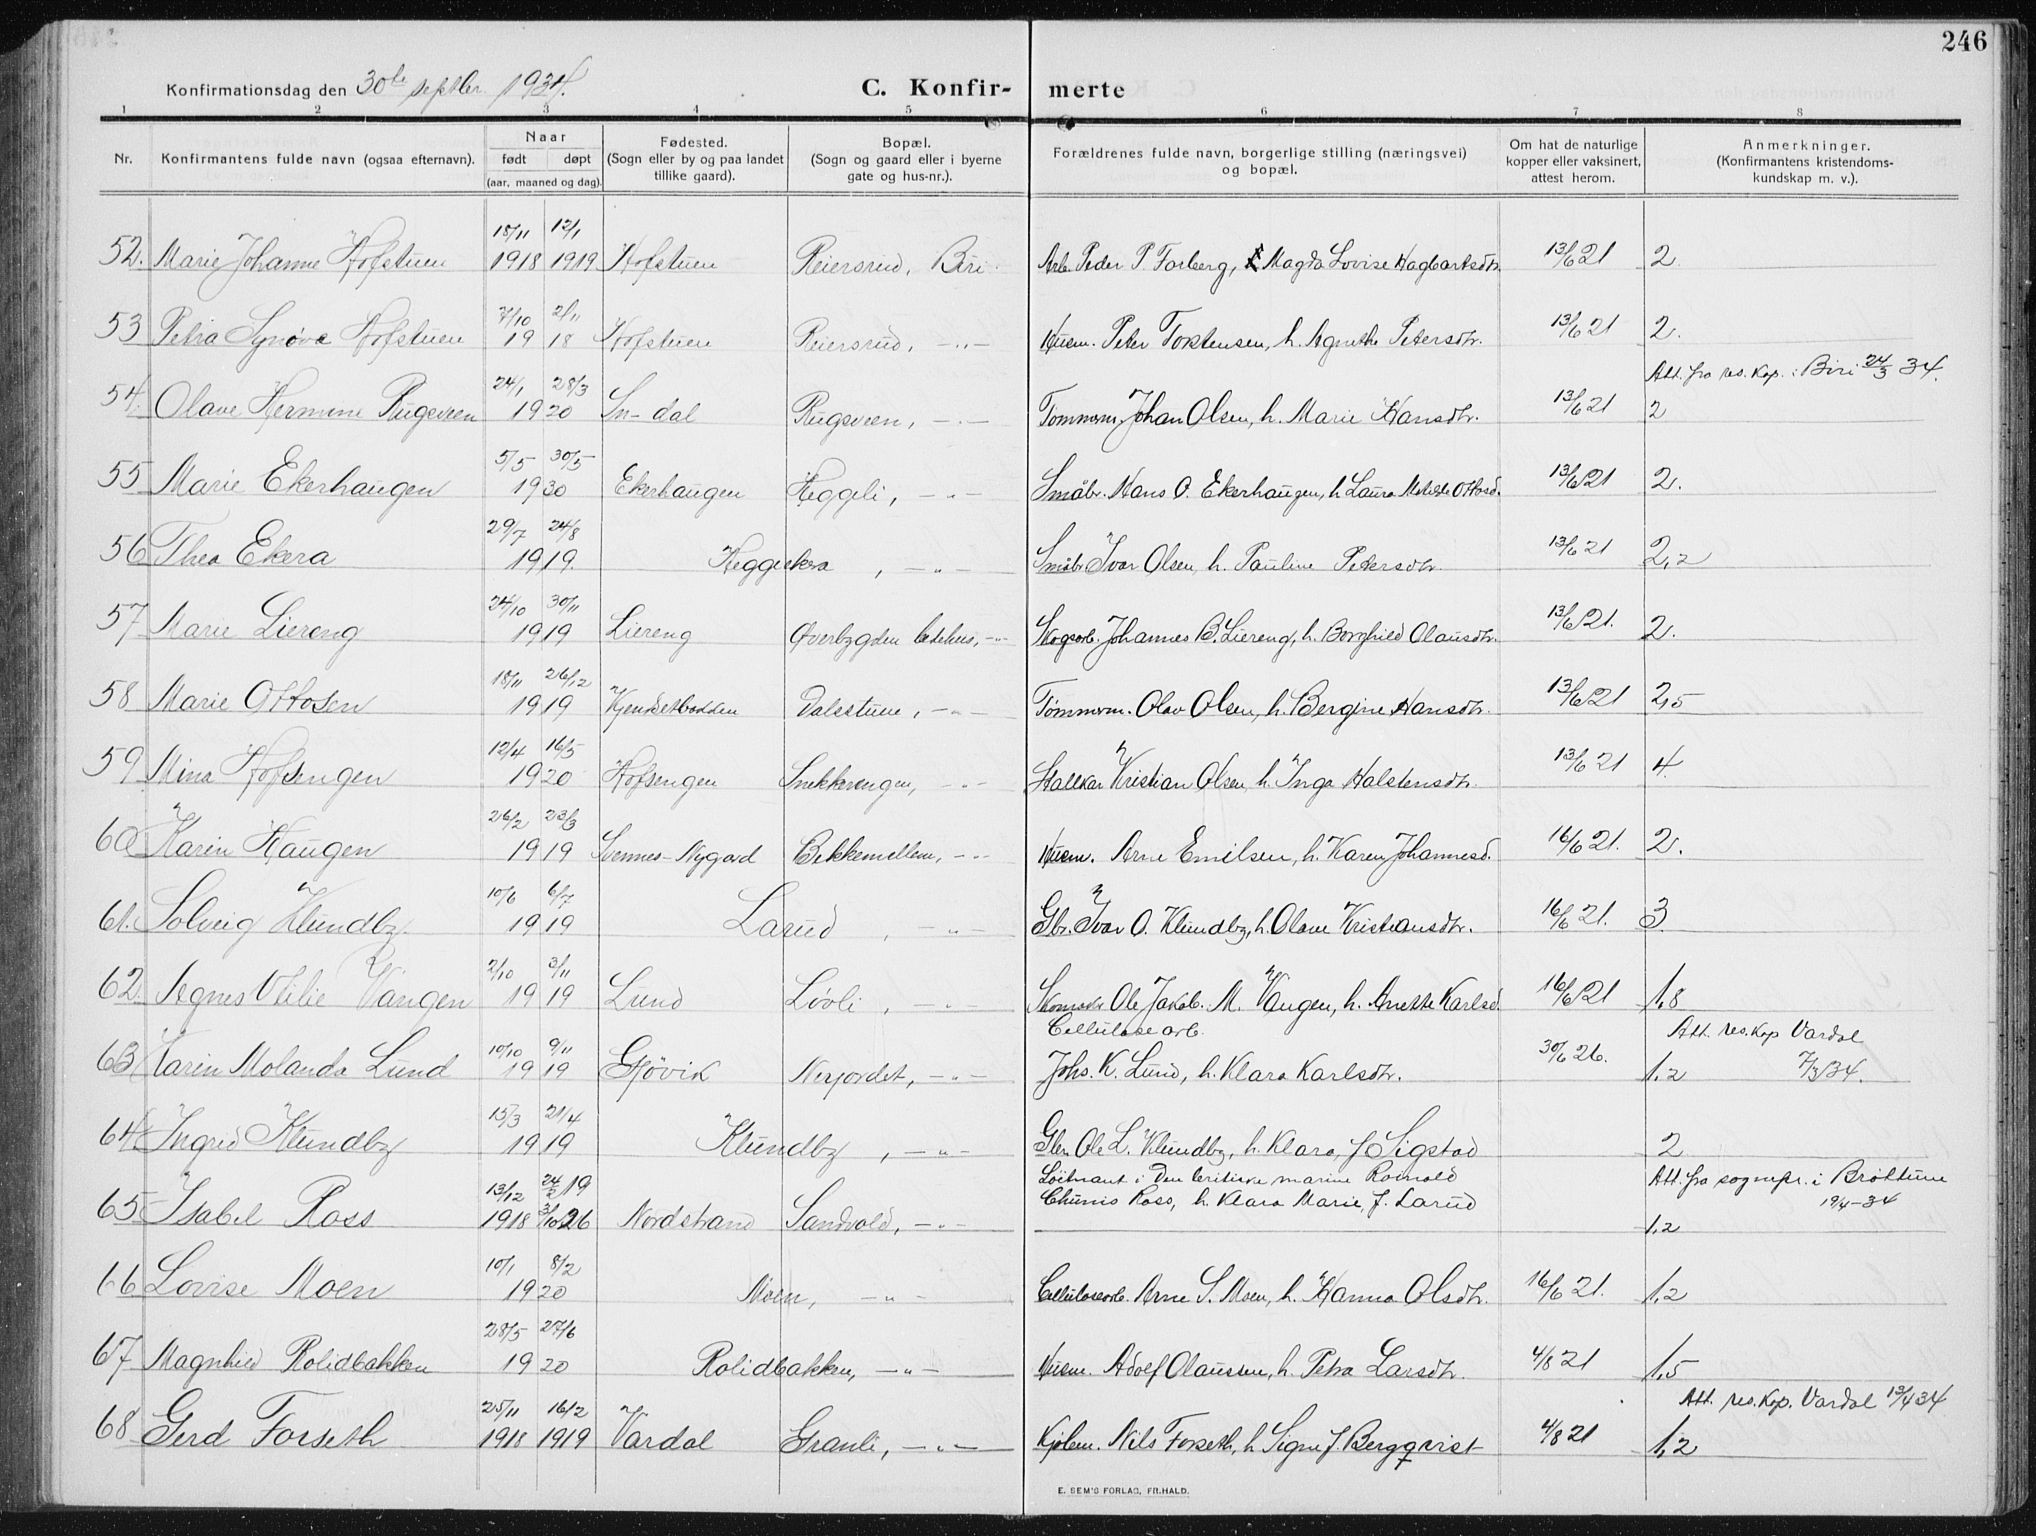 246
Konfirmationsdag den 30te septbr. 1934.
C. Konfirmerte
1 2 3 4 5 6 7 8
Nr.
Konfirmantens fulde navn (ogsaa efternavn).
Naar
født døpt
(aar, maaned og dag).
Fødested.
(Sogn eller by og paa landet
tillike gaard).
Bopæl.
(Sogn og gaard eller i byerne
gate og hus-nr.).
Forældrenes fulde navn, borgerlige stilling (næringsvei)
og bopæl.
Om hat de naturlige
kopper eller vaksinert,
attest herom.
Anmerkninger.
(Konfirmantens kristendoms-
kundskap m. v.).
18/11 12/1
52. Marie Johanne Hofstuen 1918 1919 Hofstuen Reiersrud, Biri. Arb. Peder P. Farberg, Magda Lovise Hagbartsdtr. 13/6 21 2.
7/10 2/11
53 Petra Synøve Hofstuen 19 18 Hofstuen Reiersrud, -"- Husm. Peter Torstensen, h. Agnethe Petersdtr. 13/6 21 2.
24/1 28/3 Att. fra res. kap. i Biri 24/3 34.
54. Olave Hermine Rugsveen 19 20 Sn-dal Rugsveen, -"- Tømmerm. Johan Olsen, h. Marie Hansdtr. 13/6 21 2
5/5 30/5
55 Marie Ekerhaugen 19 30 Ekerhaugen Heggeli, -"- Småbr. Hans O. Ekerhaugen, h. Laura Mathilde Ottosd. 13/6 21 2.
29/7 24/8
56 Thea Ekera 19 19. Heggekera, -"- Småbr. Ivar Olsen, h. Pauline Petersdtr. 13/6 21 2,2
24/10 30/11
57 Marie Liereng 19 19 Liereng Øverbygden bedehus, -"- Skogsarb. Johannes B. Liereng, h. Borghild Olausdtr. 13/6 21. 2.
18/11 26/12
58 Marie Ottosen 19 19 Dalsstuen, -"- Tømmerm. Olav Olsen, h. Bergine Hansdtr. 13/6 21 2,5
12/4 16/5
59 Mina Hofsengen 19 20 Hofsengen Snekkerengen, -"- Stallkar Kristian Olsen, h. Inga Halstensdtr. 13/6 21 4.
26/2 23/3
60 Karin Haugen 19 19 Svennes-Nygard Bekkemellem, -"- Husm. Arne Emilsen, h. Karen Johannesd. 16/6 21. 2.
10/6 6/7
61. Solveig Klundby 19 19 Larud, -"- Gbr. Ivar O. Klundby, h. Olave Kristiansdtr. 16/6 21. 3
2/10 3/11
62. Agnes Vilie Vangen 19 19 Lund Løvli, -"- Skomaker Ole Jakob. M. Vangen, h. Anette Karlsd. 16/6 21 1,8
Celluloseorb. Att. res. kap Vardal
10/10 9/11
63 Karin Molanda Lund 19 19 Gjøvik Nerjordet, -"- Johs. K. Lund, h. Klara Karlsdtr. 30/6 26. 1,2 7/3 34.
15/3 21/4
64 Ingrid Klundby 19 19 Klundby, -"- Gbr. Ole L. Klundby, h. Klara, f. Sigstad 2
13/12 24/2 19 Løitnant i den britiske marine Roinald Att. fra sognepr. i Brøttum
65 Isabel Ross 1918 3/10 26 Nordstrand Sandvold, -"- Chunis Ross, h. Klara Marie, f. Larud 19/4-34
1,2
10/1 8/2
66 Lovise Moen 19 20 Moen, -"- Cellulosearb. Arne S. Moen, h. Hanna Olsdtr. 16/6 21. 1,2
28/5 27/6
67 Magnhild Rolidbakken 19 20 Rolidbakken, -"- Husm. Adolf Olaussen, h. Petra Larsdtr. 4/8 21 1,5
25/11 16/2 Att. res. kap. Vardal 13/4 34
68 Gerd Forseth 1918 1919 Vardal Granli, -"- Kjøbm. Nils Forseth, h. Signe f. Bergqvist 4/8 21 1,2
E. SEM'S FORLAG, FR.HALD.